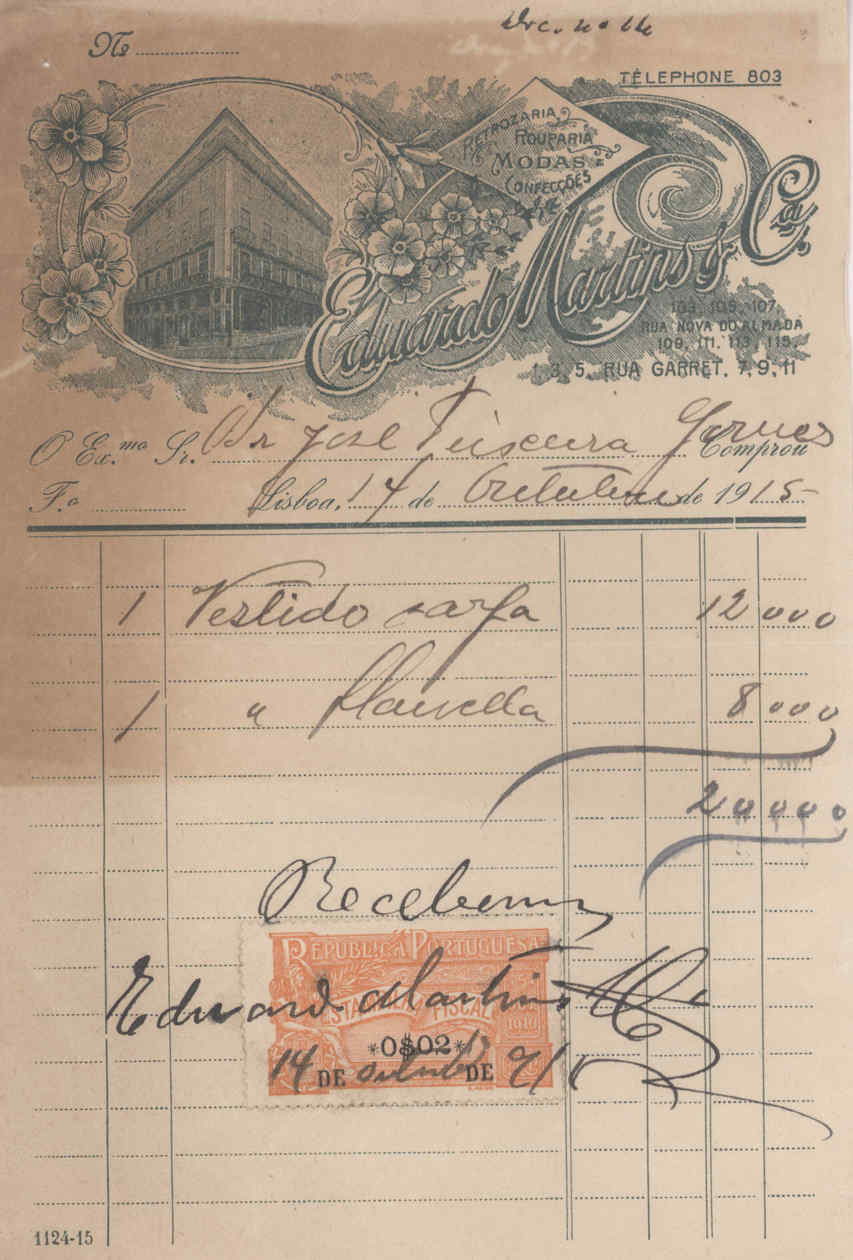 Doc. nº 14
Nº
TÉLEPHONE 803
RETROZARIA
ROUPARIA
MODAS
CONFECÇÕES
Eduardo Martins & Cª.
103, 105, 107,
RUA NOVA DO ALMADA
109, 111, 113, 115,
1, 3, 5, RUA GARRET, 7, 9, 11
O Ex.mo Sr. Dr José Teixeira Gomes Comprou
F.º Lisboa, 14 de Outubro de 1915
1 Vestido sarja 12000
1 " flanella 8000
20000
Recebemos
REPUBLICA PORTUGUESA
Eduardo Martins & Cª
FISCAL
1910
*0$02*
14 DE Outubro DE 915
1124-15